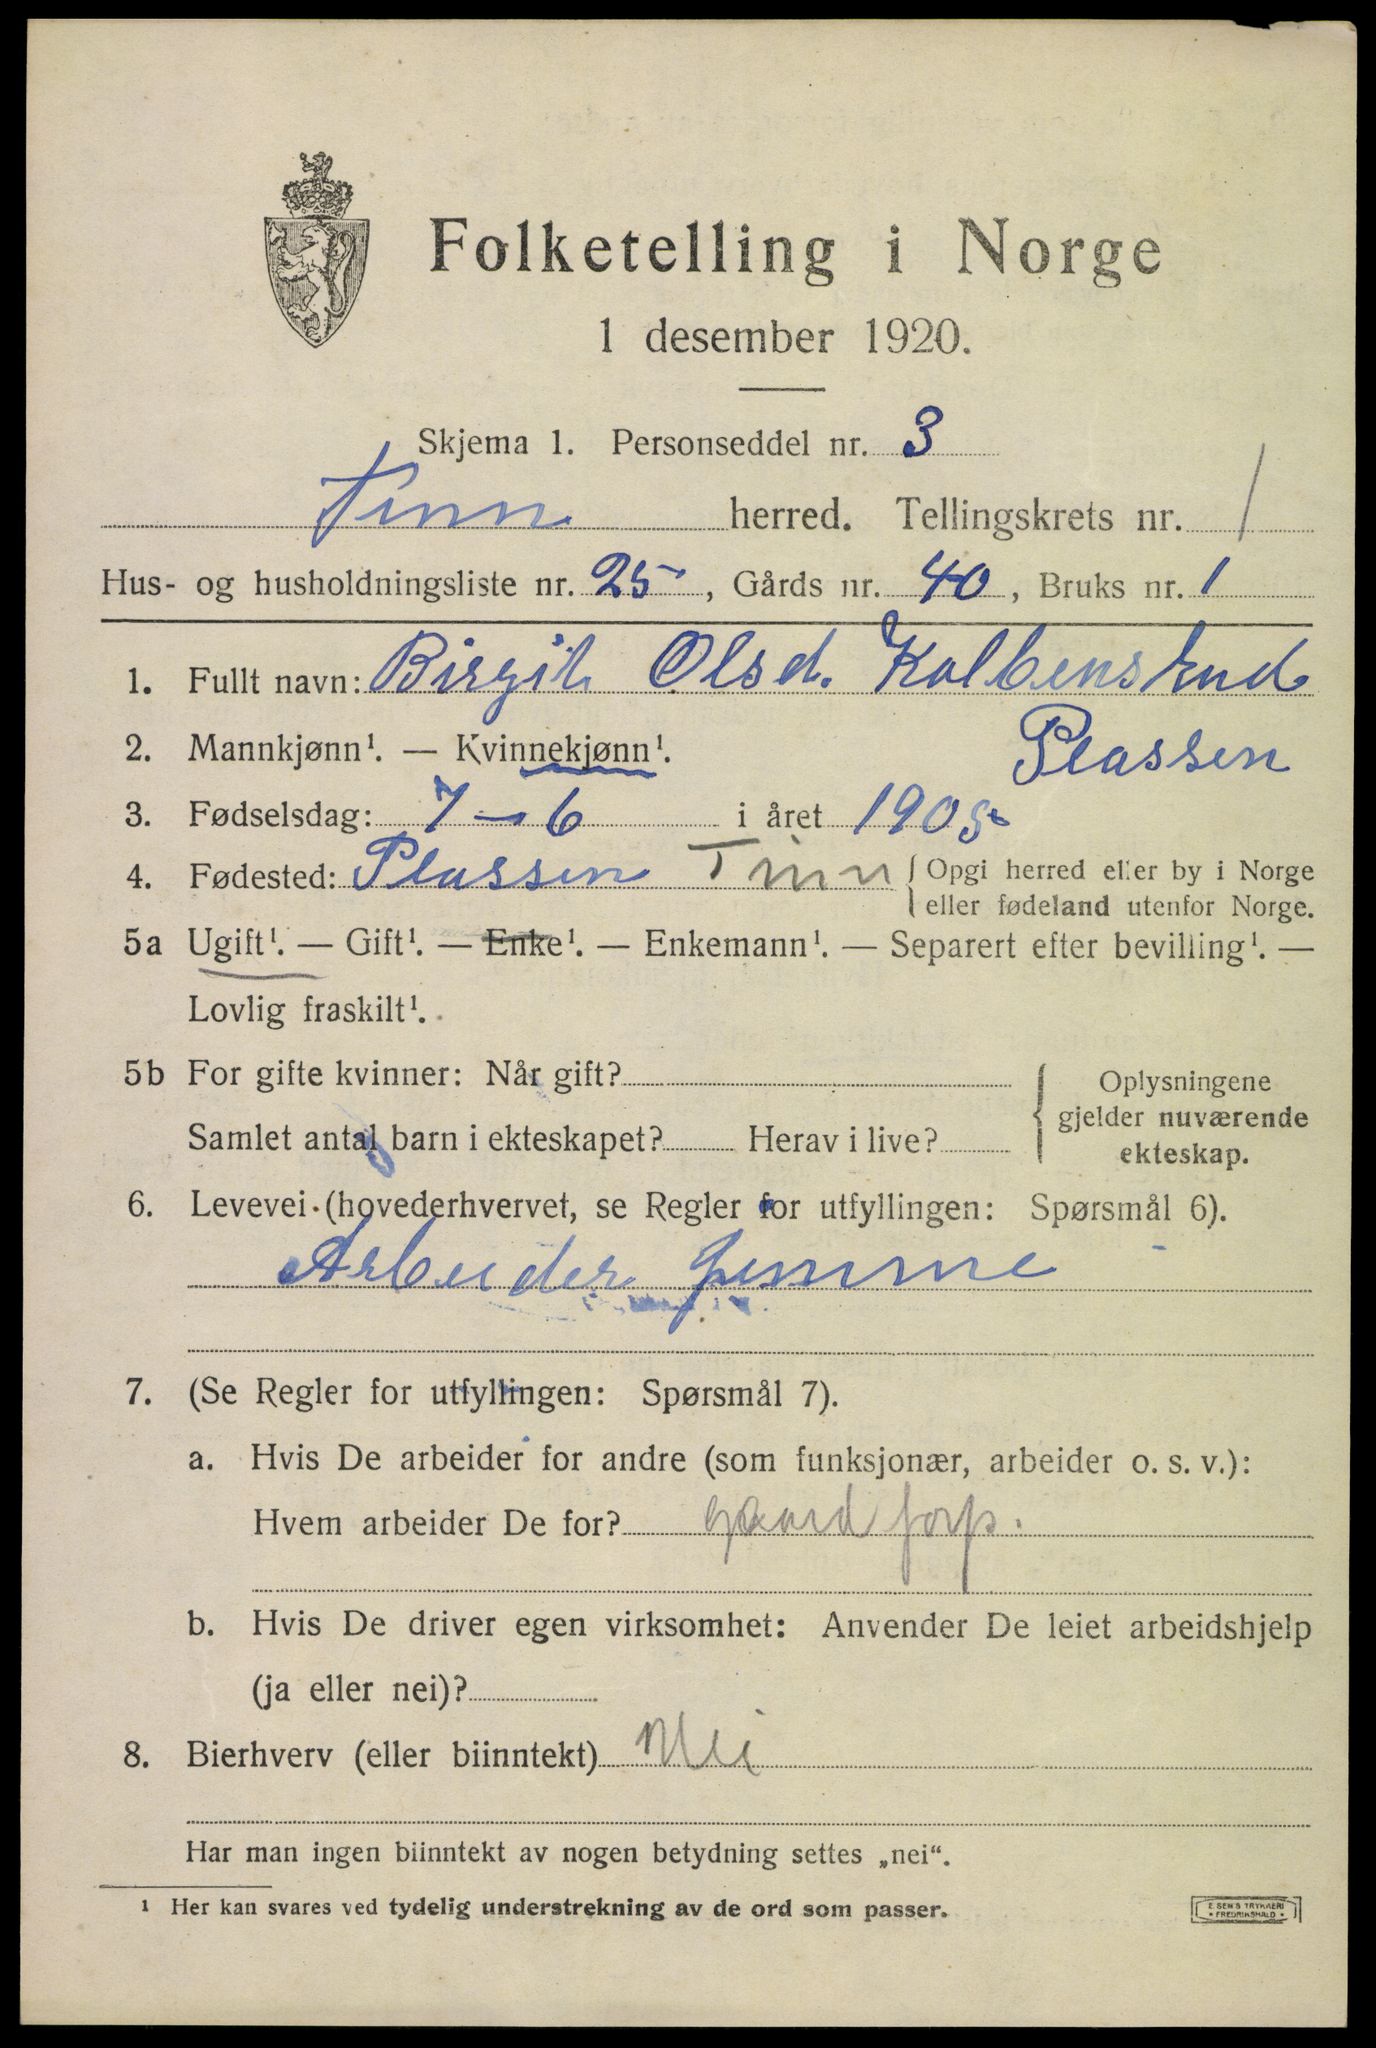 Folketelling i Norge
1 desember 1920.
Skjema 1. Personseddel nr. 3
Tinn herred. Tellingskrets nr. 1
Hus- og husholdningsliste nr. 25, Gårds nr. 40, Bruks nr. 1
1. Fullt navn: Birgit Olsd. Kolbensrud
Plassen
2. Mannkjønn¹. — Kvinnekjønn¹.
3. Fødselsdag: 7-6 i året 1905
4. Fødested: Plassen Tinn { Opgi herred eller by i Norge
eller fødeland utenfor Norge.
5a Ugift¹. — Gift¹. — Enke¹. — Enkemann¹. — Separert efter bevilling¹. —
Lovlig fraskilt¹.
5b For gifte kvinner: Når gift?
Samlet antal barn i ekteskapet? Herav i live?
{ Oplysningene
gjelder nuværende
ekteskap.
6. Levevei (hovederhvervet, se Regler for utfyllingen: Spørsmål 6).
Arbeider hjemme
7. (Se Regler for utfyllingen: Spørsmål 7).
a. Hvis De arbeider for andre (som funksjonær, arbeider o. s. v.):
Hvem arbeider De for? gaard forp.
b. Hvis De driver egen virksomhet: Anvender De leiet arbeidshjelp
(ja eller nei)?
8. Bierhverv (eller biinntekt) Nei
Har man ingen biinntekt av nogen betydning settes „nei“.
¹ Her kan svares ved tydelig understrekning av de ord som passer.
E. SEM'S TRYKKERI
• FREDRIKSHALD •